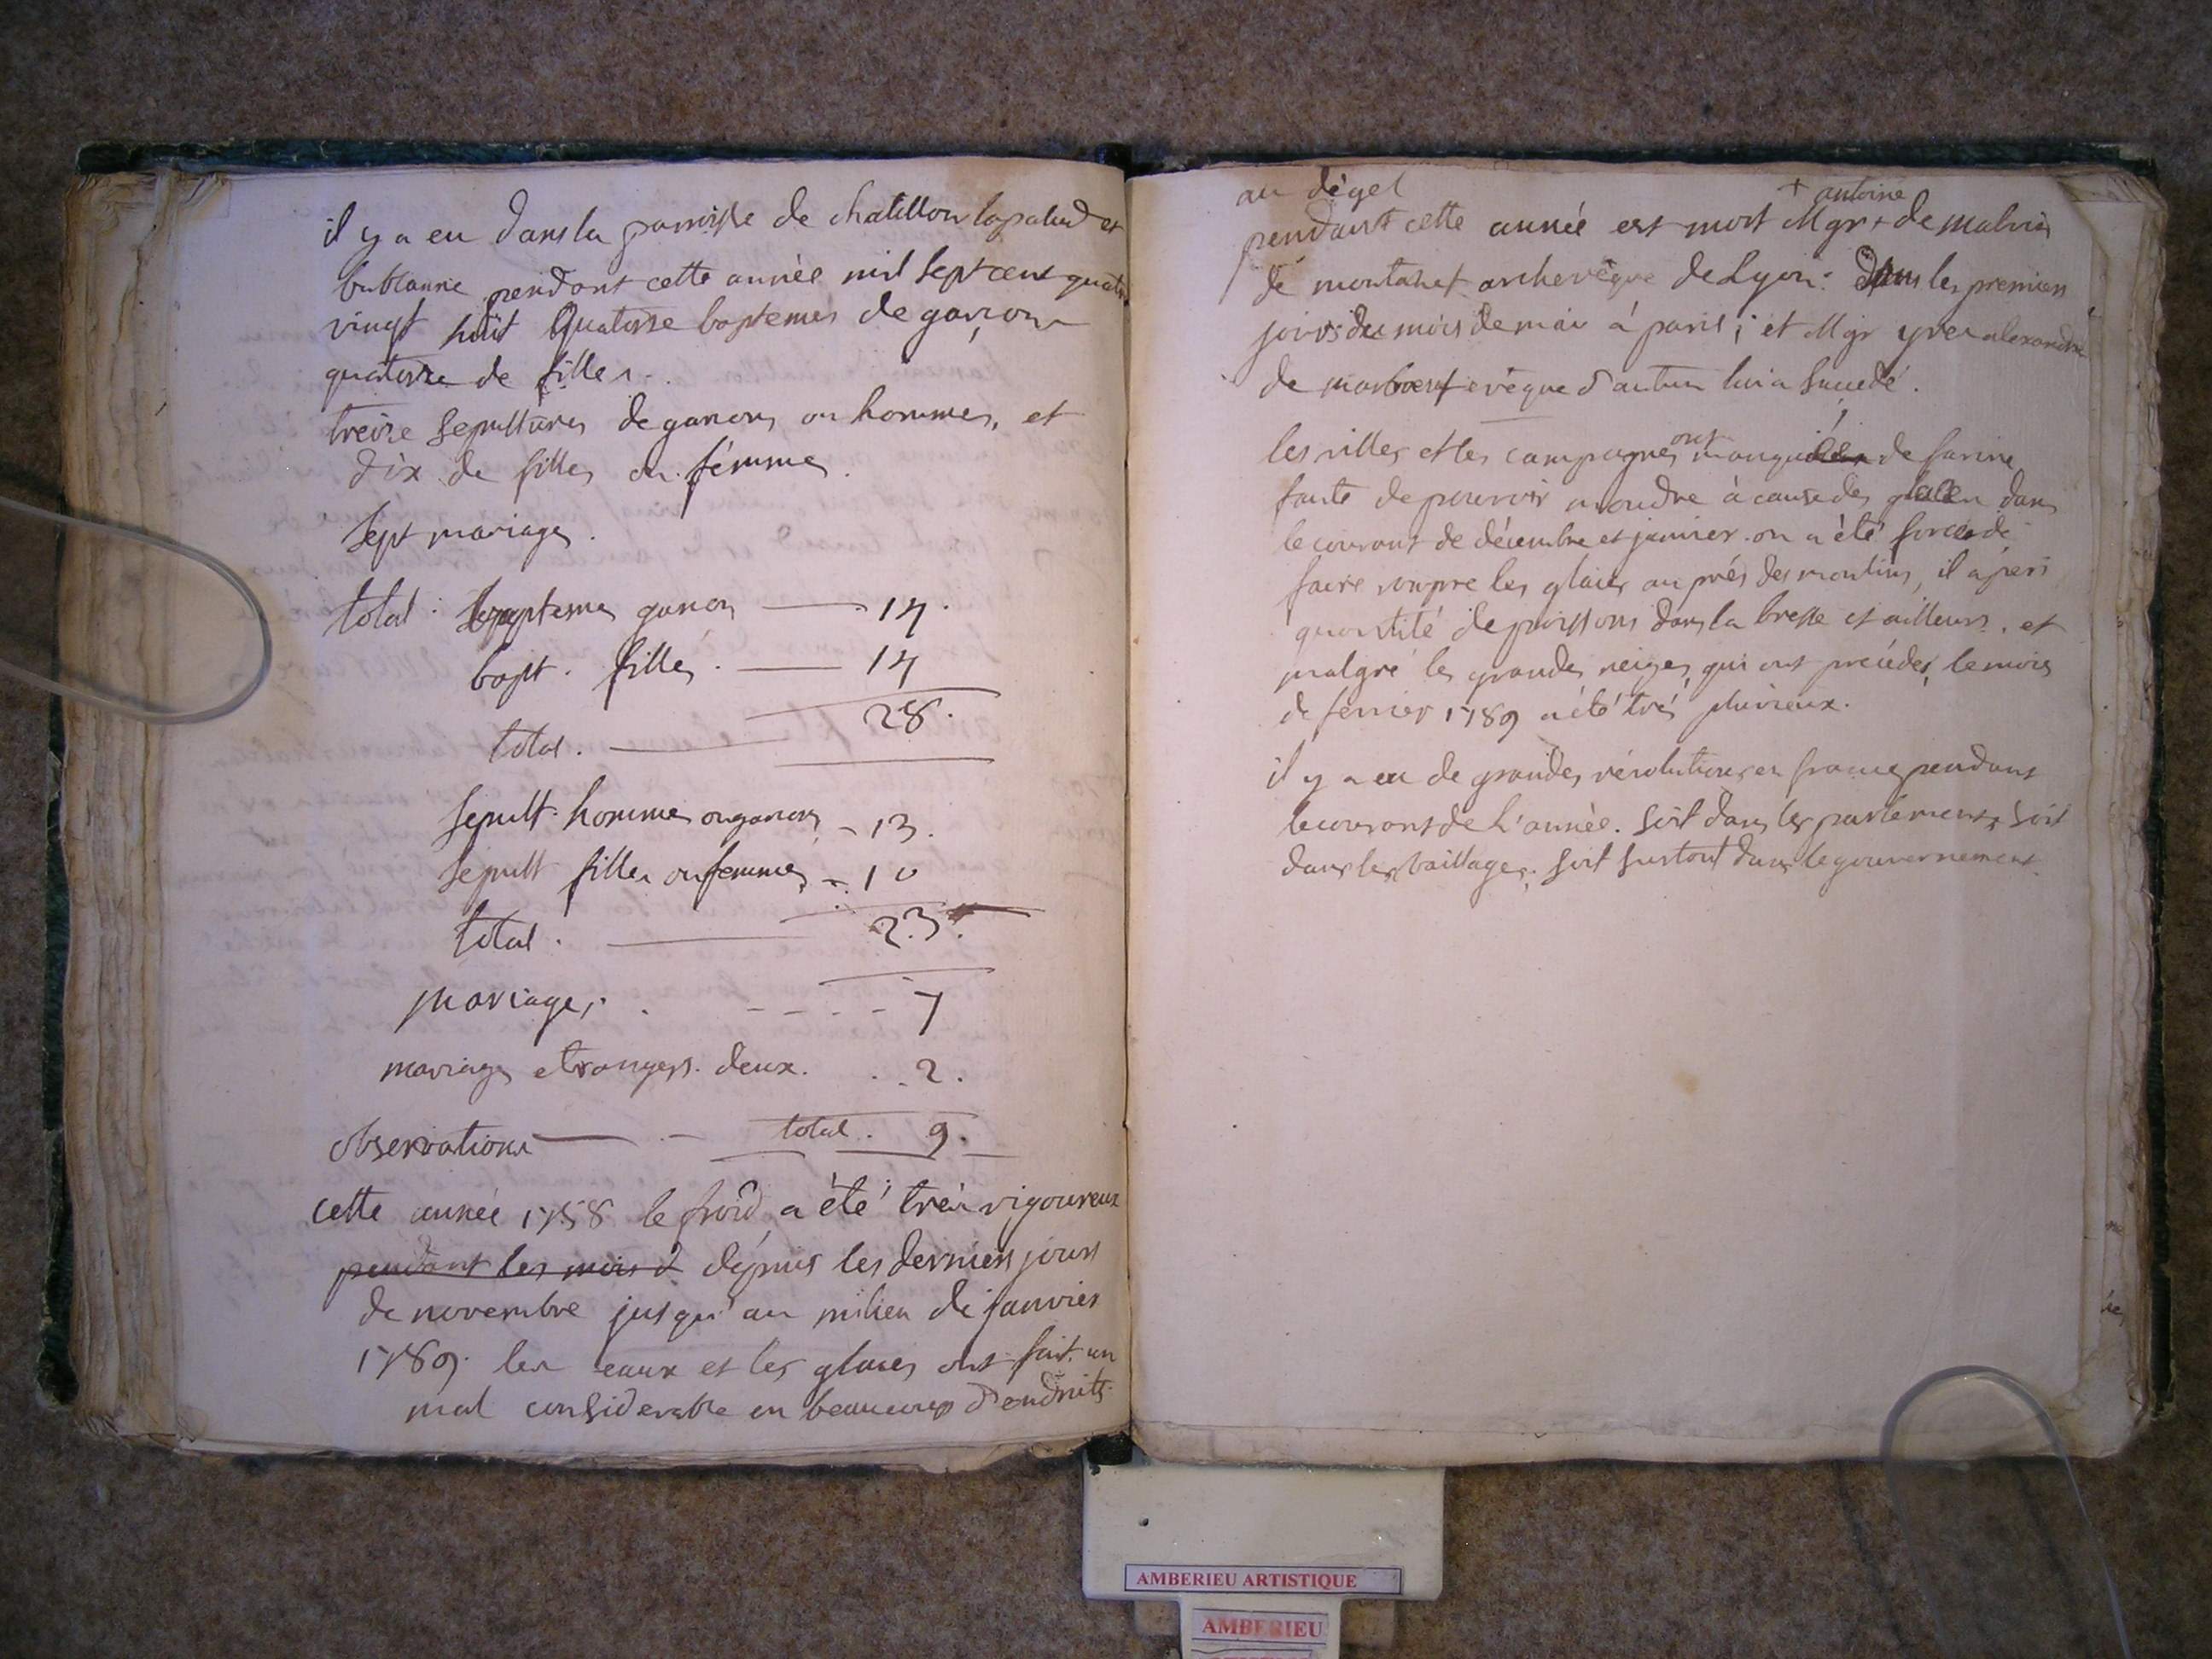 il y a eu dans la paroisse de chatillon lapalud et
bublanne pendant cette année mil sept cent quatre
vingt huit Quatorze baptemes de garçons
quatorze de filles.
treize sepultures de garçons ou hommes, et
dix de filles ou femmes.
Sept mariages.
total : baptemes garçons — 14.
bapt. filles. — 14
total. — 28.
Sepult. hommes ou garçons — 13.
Sepult filles ou femmes — 10
total. — 23.
mariages. . - - - - 7
mariages etrangers. deux. . . 2.
observations — - total. 9.
cette année 1788 le froid a été très rigoureux
pendant les mois d dépuis les derniers jours
de novembre jusqu'au milieu de janvier
1789. les eaux et les glaces ont fait un
mal considerable en beaucoup d'endroits
au dégel
+ antoine
pendant cette année est mort Mgr + de malvin
de montazet archevêque de Lyon : dans les premiers
jours du mois de mai à paris ; et Mgr yves alexandre
de marboeuf evêque d'autun lui a succedé.
les villes et les campagnes ont manqué de farine
faute de pouvoir moudre à cause des glaces dans
le courant de décembre et janvier. on a été forcé de
faire rompre les glaces au près des moulins, il a péri
quantité de poissons dans la bresse et ailleurs, et
malgré les grandes neiges qui ont precédés, le mois
de fevrier 1789 a été très pluvieux.
il y a eu de grandes révolutions en france pendant
le courant de l'année. soit dans les parlements, soit
dans les baillages, soit surtout dans le gouvernement.
AMBERIEU ARTISTIQUE
AMBERIEU